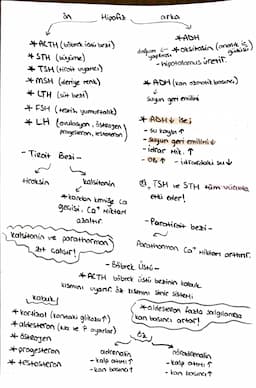 ön Hipofiz arka
* ACTH (böbrek üstü bezi)
* STH (büyüme)
* TSH (tiroit uyarıcı)
* MSH (deriye renk)
* LTH (süt bezi)
* FSH (testis, yumurtalık)
* LH (ovulasyon, östrojen
progesteron, testosteron)
* ADH
* oksitosin (annelik iç
güdüsü)
- Hipotalamus üretir.
* ADH (kan osmotik basıncı)
suyun geri emilimi
* ADH ↓ ise;
- su kaybı ↑
- suyun geri emilimi ↓
- idrar mik. ↑
- OB ↑ - idrardaki su ↓
- Tiroit Bezi -
tiroksin kalsitonin
* kandan kemiğe Ca
geçişi, Ca⁺ miktarı
azaltır.
kalsitonin ve parathormon
zıt çalışır!
TSH ve STH tüm vücuda
etki eder!
- Paratiroit bezi -
Parathormon Ca⁺ miktarı arttırır.
- Böbrek Üstü -
* ACTH böbrek üstü bezinin kabuk
kısmını uyarır. öz kısmını sinir sistemi
kabuk
* kortizol (kandaki glikozu ↑)
* aldosteron (Na ve ↑ ayarlar)
* östrojen
* progesteron
* testosteron
* aldosteron fazla salgılanırsa
kan basıncı artar!
öz
adrenalin
- kalp atımı ↑
- kan basıncı ↑
nöradrenalin
- kalp atımı ↑
- kan basıncı ↑